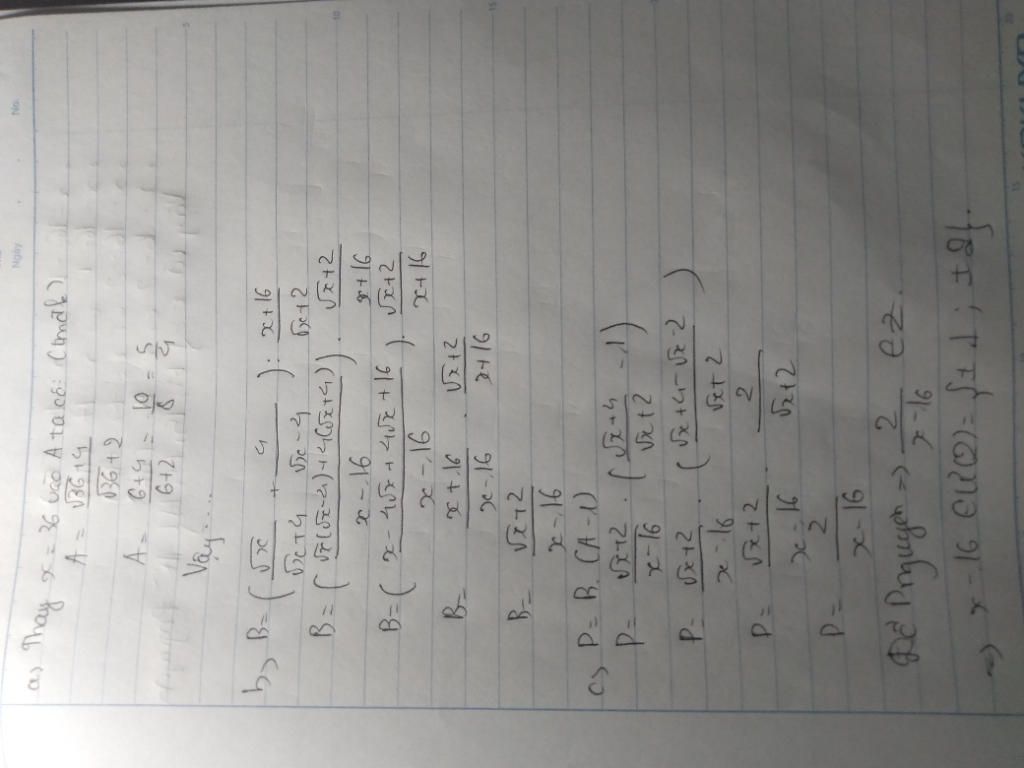 No.
Ngày
a) Thay x = 36 vào A ta có: (tmđk)
A = √36 + 4 / √36 + 2
A = 6+4 / 6+2 = 10/8 = 5/4
Vậy....
b) B = ( √x / √x+4 + 4 / √x-4 ) : x+16 / √x+2
B = ( √x(√x-4)+4(√x+4) / x-16 ) . √x+2 / x+16
B = ( x-4√x+4√x+16 / x-16 ) . √x+2 / x+16
B = x+16 / x-16 . √x+2 / x+16
B = √x+2 / x-16
c) P = B. (A-1)
P = √x+2 / x-16 . ( √x+4 / √x+2 - 1)
P = √x+2 / x-16 . ( √x+4-√x-2 / √x+2 )
P = √x+2 / x-16 . 2 / √x+2
P = 2 / x-16
Để P nguyên => 2 / x-16 ∈ Z.
=> x-16 ∈ Ư(2) = {±1; ±2}.